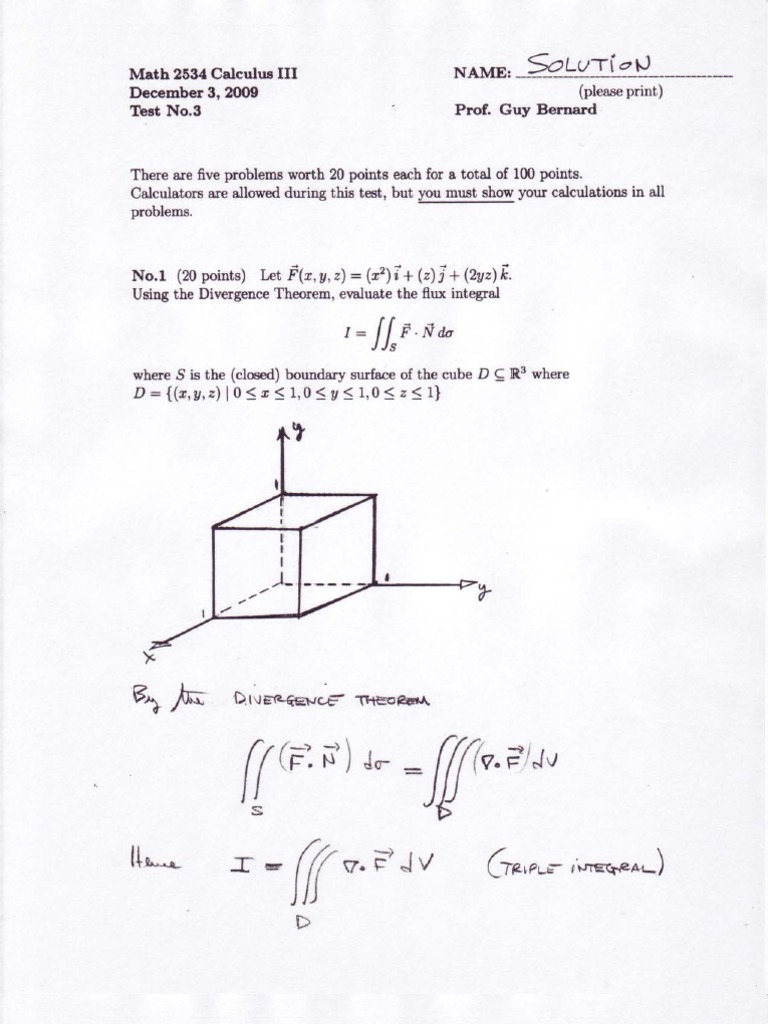 Math 2534 Calculus III
NAME: SOLUTION
December 3, 2009
(please print)
Test No.3
Prof. Guy Bernard
There are five problems worth 20 points each for a total of 100 points.
Calculators are allowed during this test, but you must show your calculations in all
problems.
No.1 (20 points) Let F⃗(x, y, z) = (x²) i⃗ + (z) j⃗ + (2yz) k⃗.
Using the Divergence Theorem, evaluate the flux integral
I = ∬_S F⃗ · N⃗ dσ
where S is the (closed) boundary surface of the cube D ⊆ ℝ³ where
D = {(x, y, z) | 0 ≤ x ≤ 1, 0 ≤ y ≤ 1, 0 ≤ z ≤ 1}
y
1
1
y
1
x
By the DIVERGENCE THEOREM
∬_S (F⃗ · N⃗) dσ = ∭_D (∇ · F⃗) dV
Hence I = ∭_D ∇ · F⃗ dV (TRIPLE INTEGRAL)